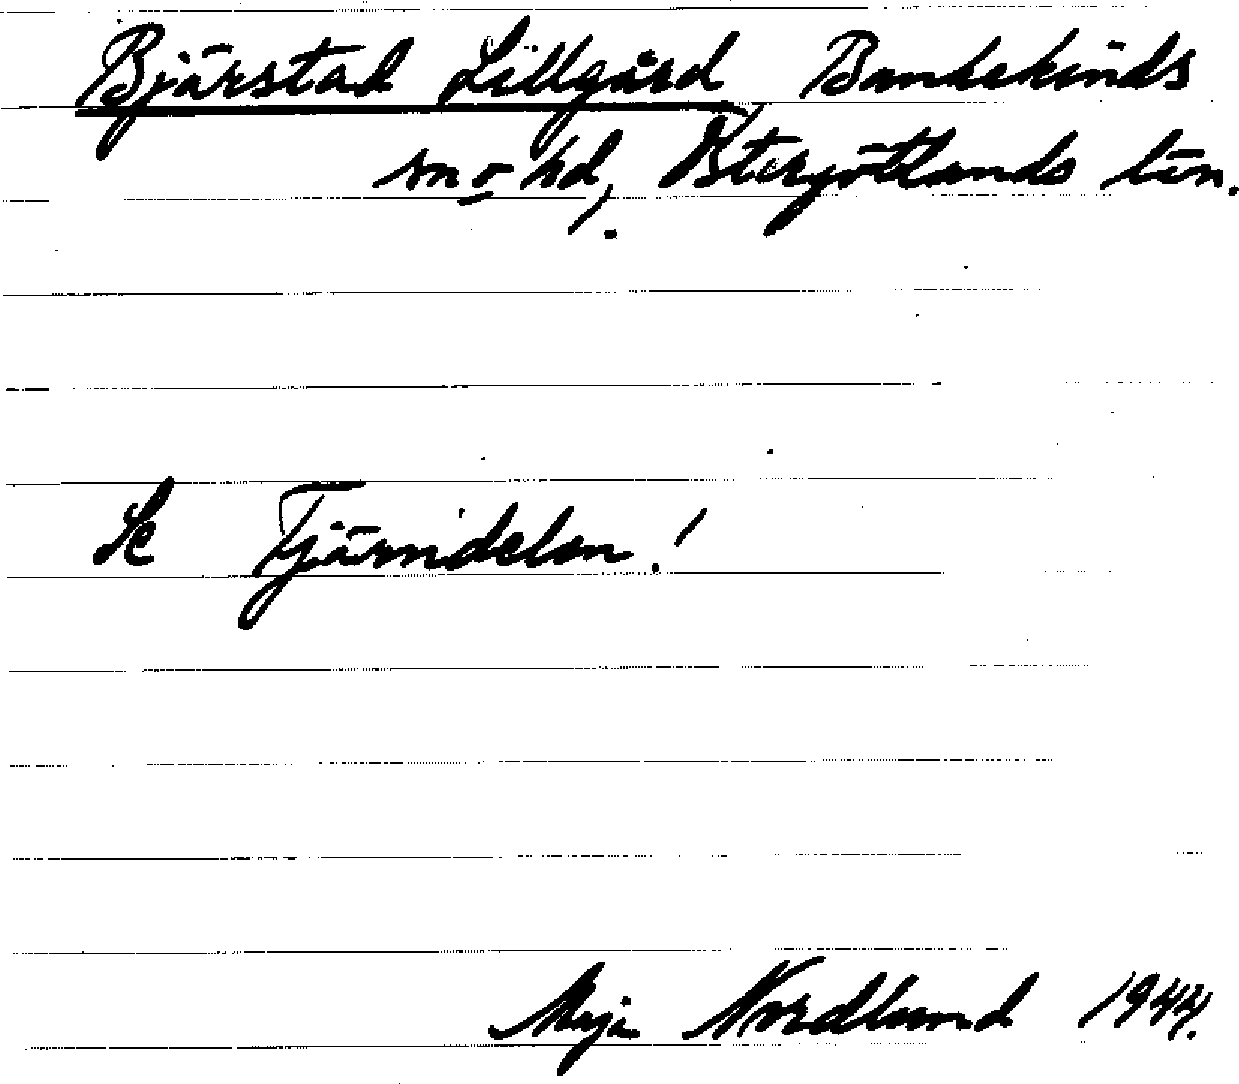 Bjärstad Lillgård, Bandekinds
sn o hd, Östergötlands län.
Se Fjärndelen!
Maja Nordlund 1944.